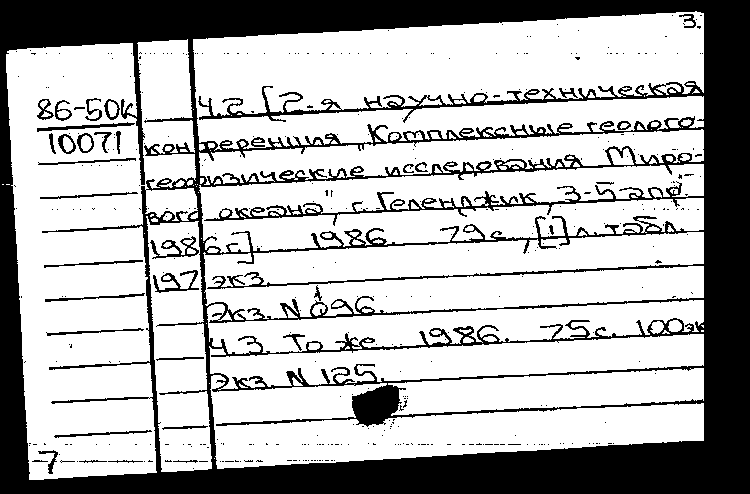 3.
86-50к Ч.2. [2-я научно-техническая
10071 конференция „Комплексные геолого-
геофизические исследования Миро-
вого океана", г. Геленджик, 3-5 апр.
1986 г.]. 1986. 79 с., [1] л. табл.
197 экз.
Экз. N 096.
Ч.3. То же. 1986. 75 с. 100 эк
Экз. N 125.
7